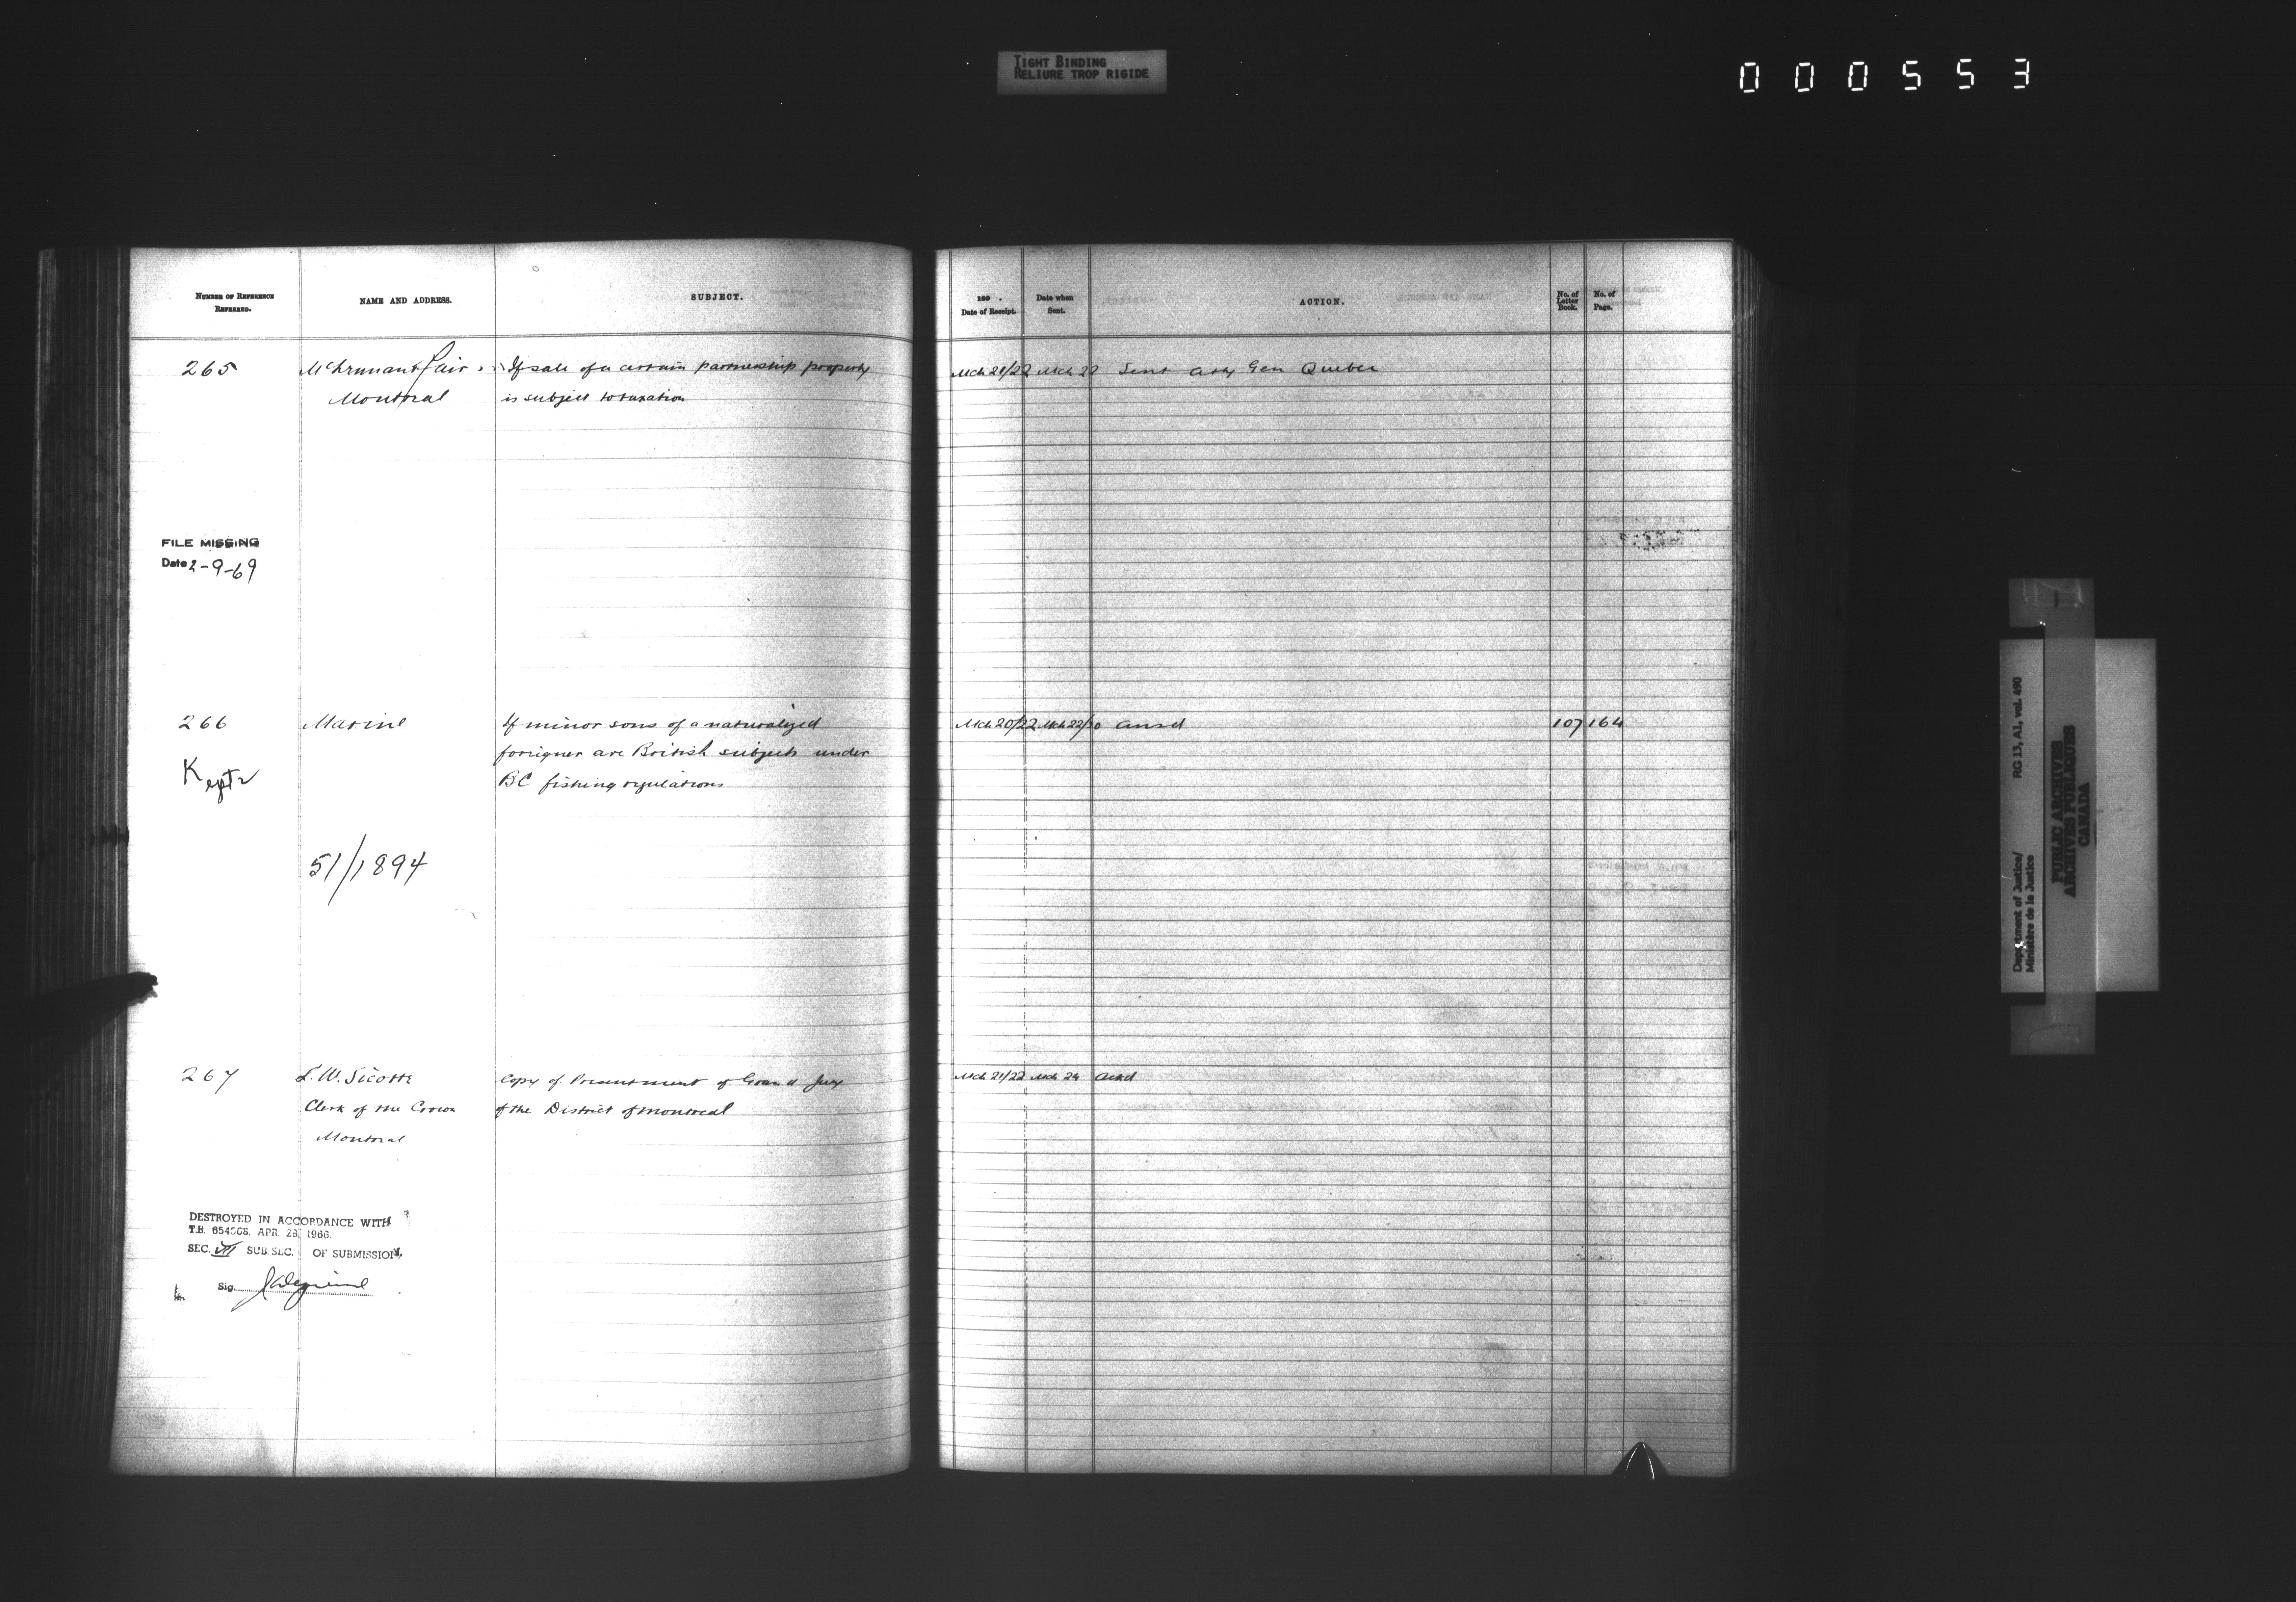 TIGHT BINDING
RELIURE TROP RIGIDE
000553
NUMBER OF REFERENCE
REFERRED.
NAME AND ADDRESS.
SUBJECT.
189 .
Date of Receipt.
Date when
Sent.
ACTION.
No. of
Letter
Book.
No. of
Page.
265
Fair
If sale of a certain partnership property
Mch 21/22 Mch 22 Sent Atty Gen Quebec
Montreal
is subject to taxation
FILE MISSING
Date 2-9-69
266
Marine
If minor sons of a naturalized
Mch 20/22 Mch 22/30 ansd
107 164
foreigner are British subjects under
Kept
BC fishing regulations
51/1894
267
L. W. Sicotte
Copy of Presentment of Grand Jury
Mch 21/22 Mch 24 ackd
Clerk of the Crown
of the District of Montreal
Montreal
DESTROYED IN ACCORDANCE WITH
T.B. APR. 28, 1966.
SEC. VII SUB. SEC. OF SUBMISSION.
Sig.
Department of Justice/
Ministère de la Justice
RG 13, A1, vol. 490
PUBLIC ARCHIVES
ARCHIVES PUBLIQUES
CANADA